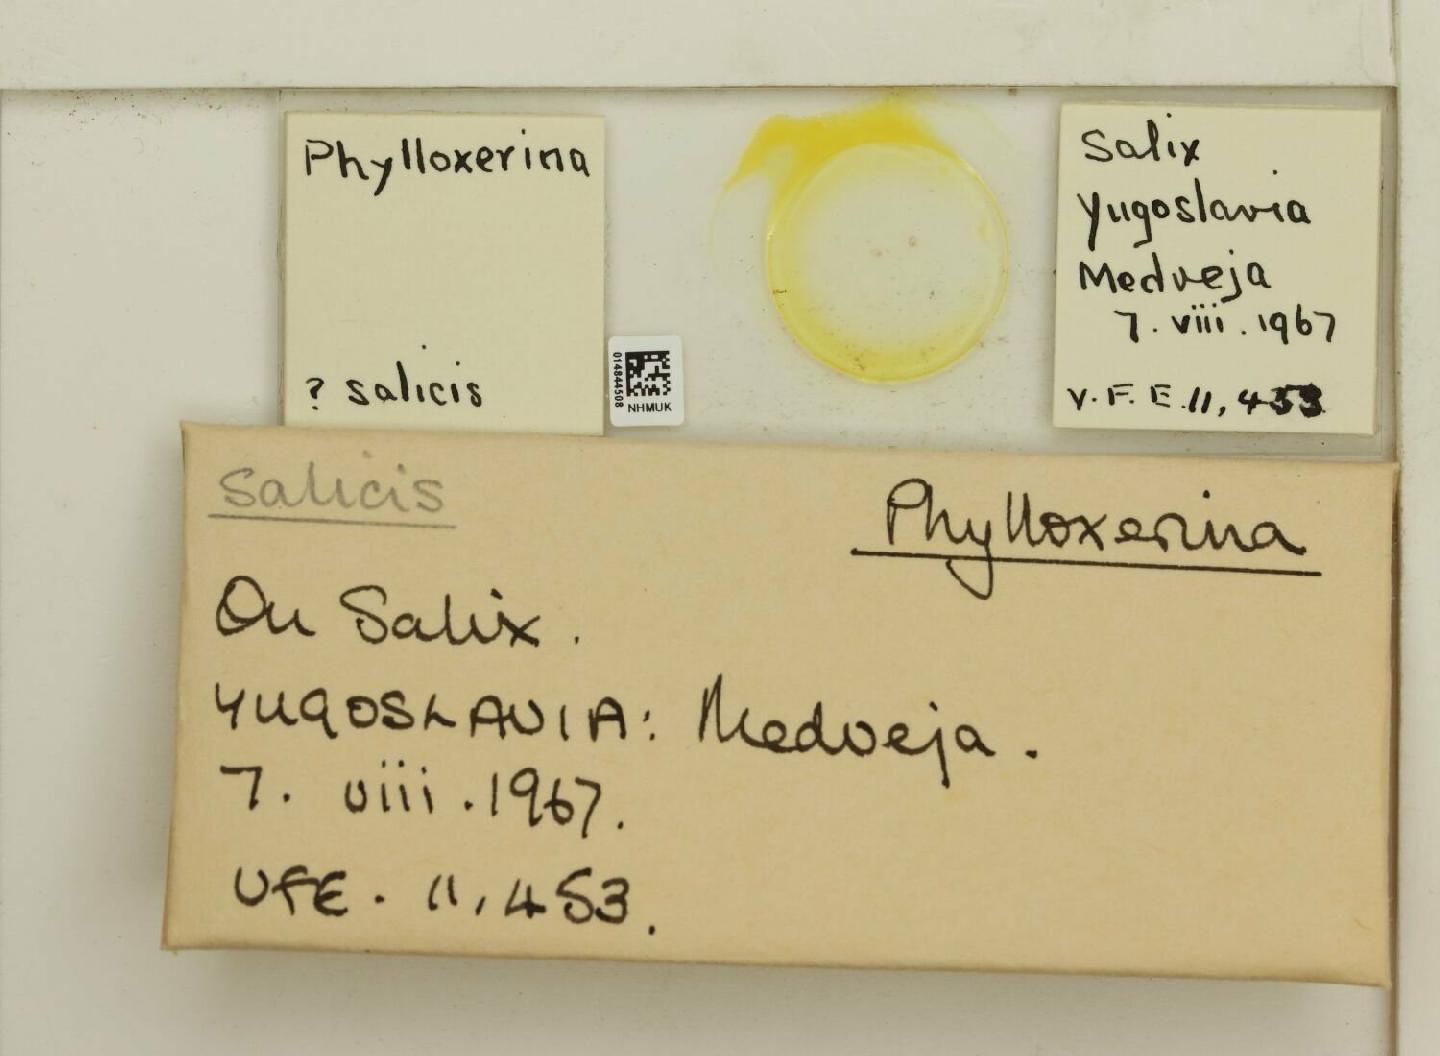 Phylloxerina
? salicis
014844508
NHMUK
Salix
Yugoslavia
Medveja
7. viii. 1967
V.F.E. 11,453
Salicis
Phylloxerina
On Salix.
YUGOSLAVIA: Medveja.
7. viii. 1967.
VFE. 11,453.